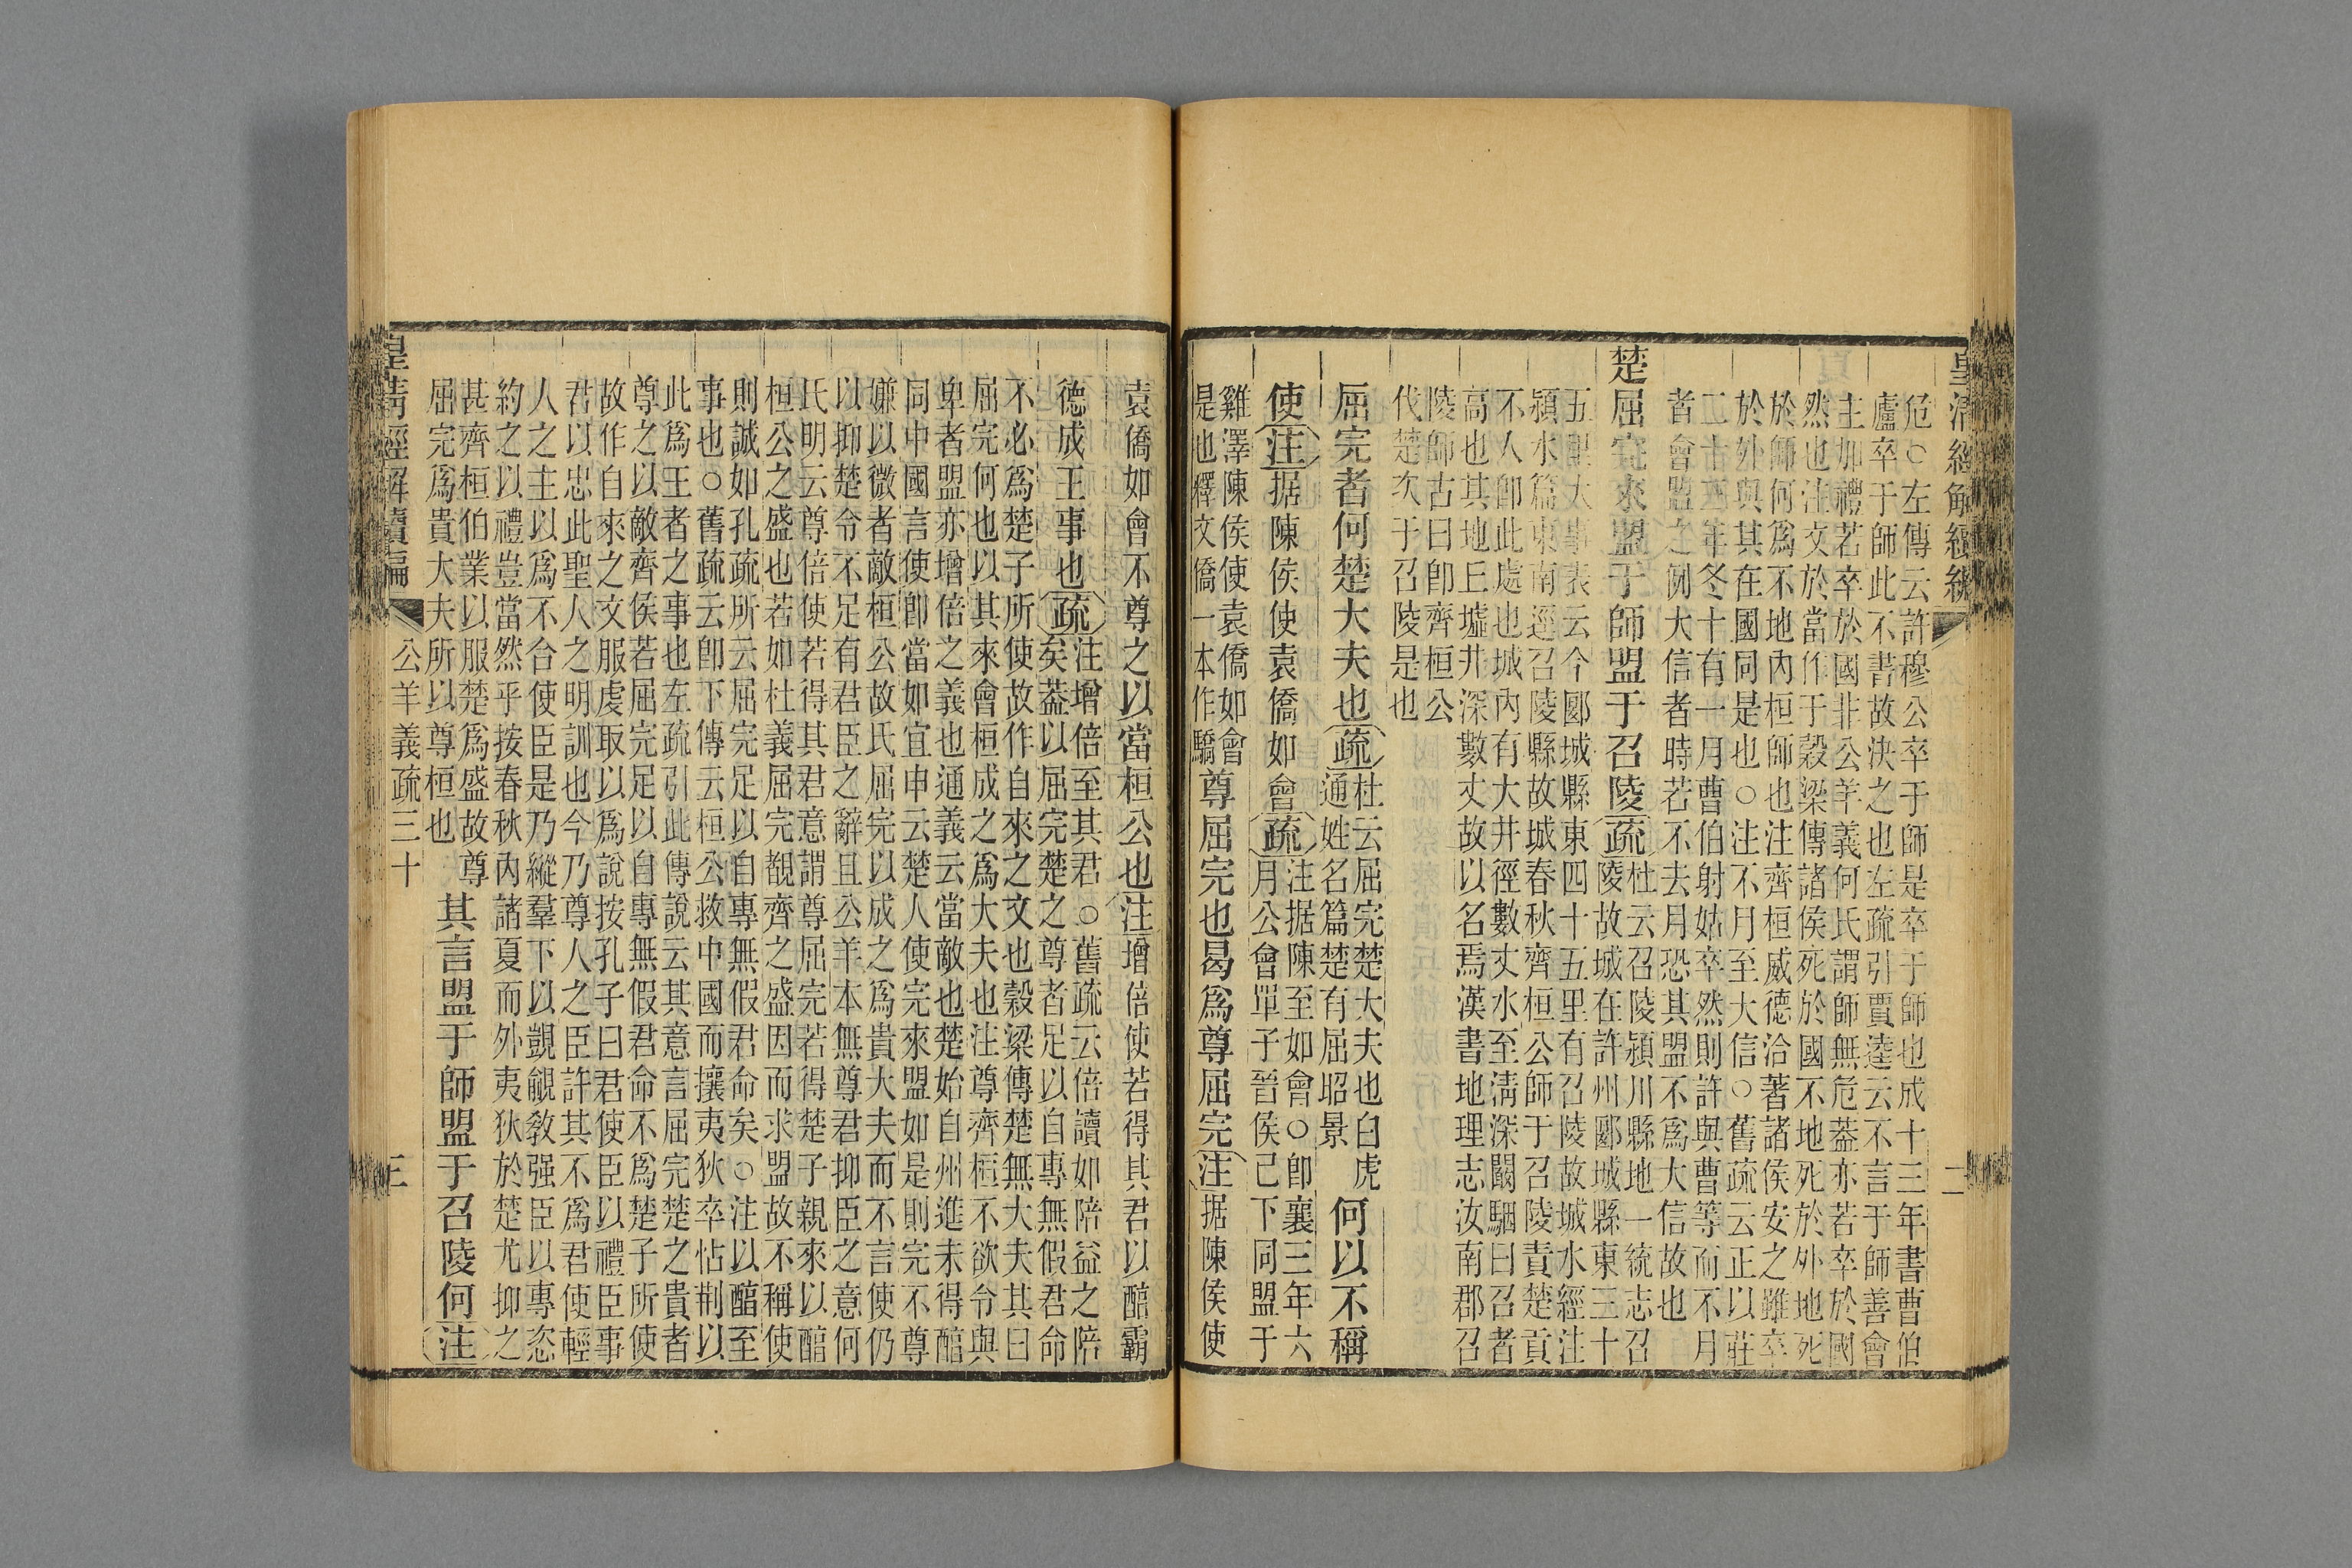 皇清經解續編　二
危○左傳云許穆公卒于師是卒于師也成十三年書曹伯
廬卒于師此不書故決之也左疏引賈逵云不言于師善會
主加禮若卒於國非公羊義何氏謂師無危蓋亦若卒於國
然也注文於當作于穀梁傳諸侯死於國不地死於外地死
於師何爲不地內桓師也注齊桓威德洽著諸侯安之雖卒
於外與其在國同是也○注不月至大信○舊疏云正以莊
二十三年冬十有一月曹伯射姑卒然則許與曹等而不月
者會盟之例大信者時若不去月恐其盟不爲大信故也
楚屈完來盟于師盟于召陵疏杜云召陵潁川縣地一統志召
陵故城在許州郾城縣東三十
五里大事表云今郾城縣東四十五里有召陵故城水經注
潁水篇東南逕召陵縣故城春秋齊桓公師于召陵責楚貢
不入卽此處也城內有大井徑數丈水至淸深闞駰曰召者
高也其地丘墟井深數丈故以名焉漢書地理志汝南郡召
陵師古曰卽齊桓公
代楚次于召陵是也
屈完者何楚大夫也疏杜云屈完楚大夫也白虎
通姓名篇楚有屈昭景何以不稱
使注据陳侯使袁僑如會疏注据陳至如會○卽襄三年六
月公會單子晉侯己下同盟于
雞澤陳侯使袁僑如會
是也釋文僑一本作驕尊屈完也曷爲尊屈完注据陳侯使
袁僑如會不尊之以當桓公也注增倍使若得其君以醕霸
德成王事也疏注增倍至其君○舊疏云倍讀如陪益之陪
矣蓋以屈完楚之尊者足以自專無假君命
不必爲楚子所使故作自來之文也穀梁傳楚無大夫其曰
屈完何也以其來會桓成之爲大夫也注尊齊桓不欲令與
卑者盟亦增倍之義也通義云當敵也楚始自州進未得醕
同中國言使卽當如宜申云楚人使完來盟如是則完不尊
嫌以微者敵桓公故氏屈完以成之爲貴大夫而不言使仍
以抑楚令不足有君臣之辭且公羊本無尊君抑臣之意何
氏明云尊倍使若得其君意謂尊屈完若得楚子親來以醕
桓公之盛也若如杜義屈完覩齊之盛因而求盟故不稱使
則誠如孔疏所云屈完足以自專無假君命矣○注以醕至
事也○舊疏云卽下傳云桓公救中國而攘夷狄卒怗荆以
此爲王者之事也左疏引此傳說云其意言屈完楚之貴者
尊之以敵齊侯若屈完足以自專無假君命不爲楚子所使
故作自來之文服虔取以爲說按孔子曰君使臣以禮臣事
君以忠此聖人之明訓也今乃尊人之臣許其不爲君使輕
人之主以爲不合使臣是乃縱羣下以覬覦敎强臣以專恣
約之以禮豈當然乎按春秋內諸夏而外夷狄於楚尤抑之
甚齊桓伯業以服楚爲盛故尊
屈完爲貴大夫所以尊桓也其言盟于師盟于召陵何注
皇清經解續編　公羊義疏三十　三